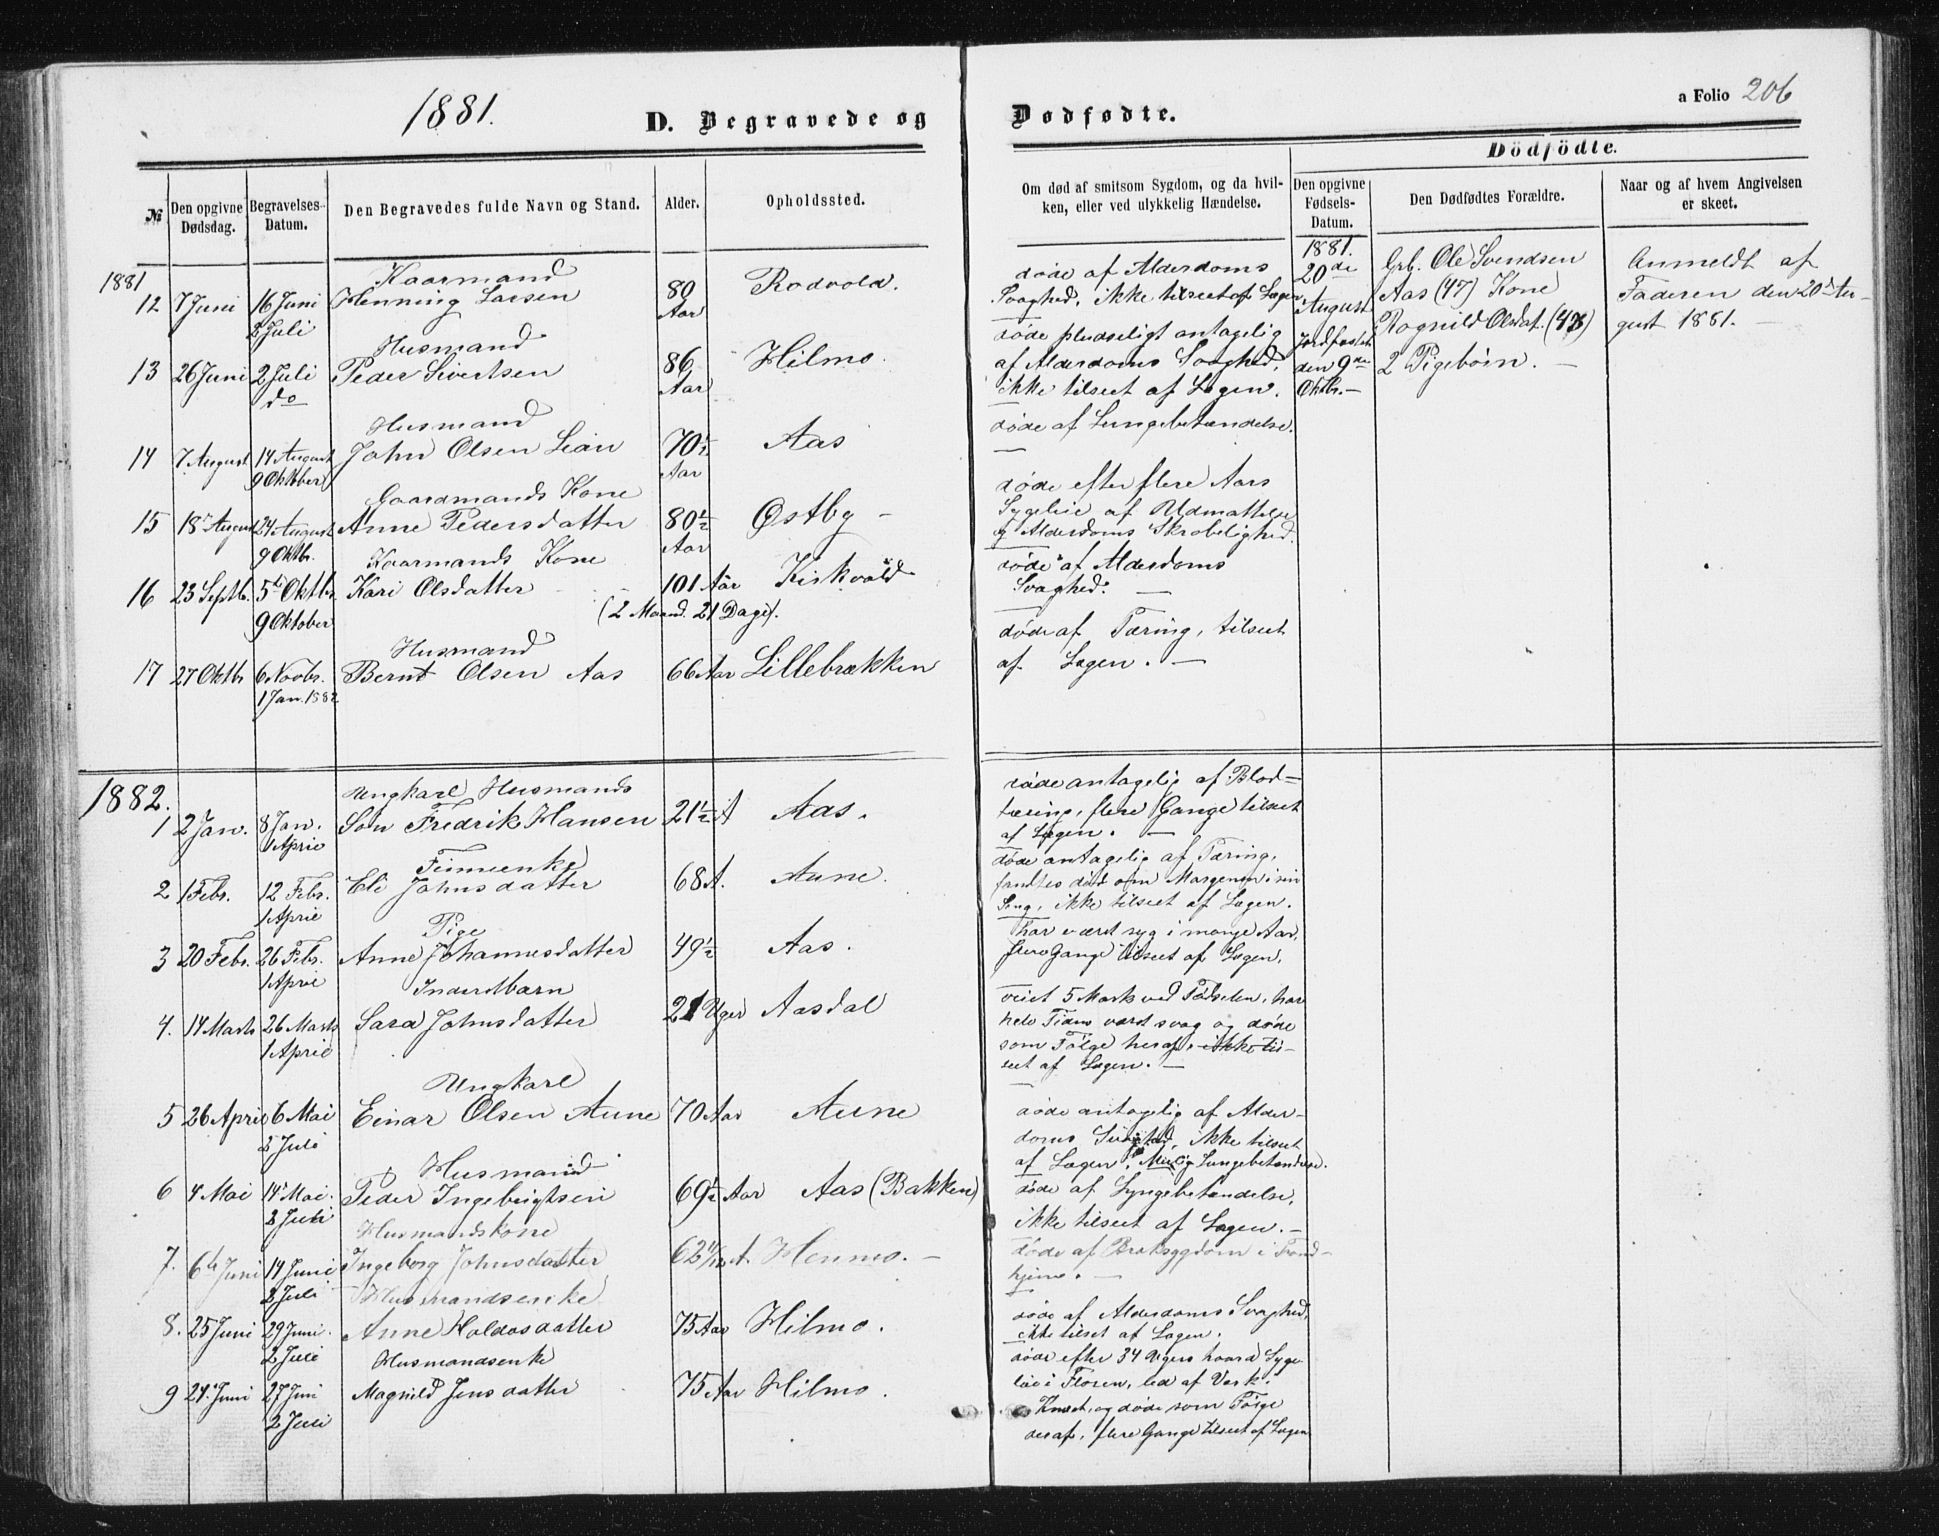 1881.
D. Begravede og Dødfødte.
a Folio 206
№
Den opgivne Dødsdag.
Begravelses-Datum.
Den Begravedes fulde Navn og Stand.
Alder.
Opholdssted.
Om død af smitsom Sygdom, og da hvilken, eller ved ulykkelig Hændelse.
Dödfödte.
Den opgivne Fødsels-Datum.
Den Dødfødtes Forældre.
Naar og af hvem Angivelsen er skeet.
1881
Kaarmand
12 7 Juni 16 Juni Henning Larsen 80 Aar Rodvold.
2 Juli
døde af Alderdoms
Svaghed, ikke tilseet af Lægen
1881.
20de
August
Jordfæstet
den 9de
Oktbr. —
Grb. Ole Svendsen
Aas (47) Kone
Ragnild Olsdat. (43)
2 Pigebørn. —
Anmeldt af
Faderen den 20de Au-
gust 1881. —
Husmand
13 26 Juni 2 Juli Peder Sivertsen 86 Aar Hilmo.
do
døde pludseligt antagelig
af Alderdoms Svaghed,
ikke tilseet af Lægen.
Husmand
14 7 August 14 August John Olsen Lian 70½ Aar Aas
9 Oktober
døde af Lungebetændelse.
—
Gaardmands Kone
15 18 August 24 August Anne Pedersdatter 80½ Aar Østby —
9 Oktbr.
døde efter flere Aars
Sygeleie af Udmattelse
og Alderdoms Skrøbelighed.
Kaarmands Kone
16 23 Septb. 5te Oktbr Kari Olsdatter 101 Aar Kirkvold
9 Oktober (2 Maaned. 21 Dage).
døde af Alderdoms
Svaghed. —
Husmand
17 27 Oktbr 6 Novbr. Bernt Olsen Aas 66 Aar Lillebrækken
1 Jan. 1882
døde af Tæring, tilseet
af Lægen. —
1882.
Ungkarl Husmands
1 2 Jan. 8 Jan. Søn Fredrik Hansen 21½ A Aas.
1 April
døde antagelig af Blod-
tæring, flere Gange tilseet
af Lægen. —
2 1 Febr. 12 Febr. Eli Johnsdatter 68 A. Aune.
1 April
døde antagelig af Tæring,
fandtes død om Morgenen i sin
Seng, ikke tilseet af Lægen.
Pige
3 20 Febr. 26 Febr. Anne Johannesdatter 49½ Aas.
1 April
har været syg i mange Aar,
flere Gange tilseet af Lægen.
Inderstbarn
4. 14 Marts 26 Marts Sara Johnsdatter 21 Uger Aasdal
1 April
veiet 5 Mark ved Fødselen, har
hele Tiden været svag og døde
som Følge heraf, ikke til-
seet af Lægen. —
Ungkarl
5 26 April 6 Mai Einar Olsen Aune 70 Aar Aune
2 Juli
døde antagelig af Alder-
doms Svaghed, ikke tilseet
af Lægen, Mulig Lungebetændelse.
Husmand
6 4 Mai 14 Mai. Peder Ingebrigtsen 69½ Aar Aas (Bakken)
2 Juli
døde af Lungebetændelse,
ikke tilseet af Lægen. —
Husmandskone
7. 6te Juni 14 Juni Ingeborg Johnsdatter A. Henmo. —
2 Juli
døde af Broksygdom i Trond-
hjem. —
Husmandsenke
8. 25 Juni 29 Juni. Anne Haldosdatter 75 Aar Hilmo.
2 Juli
døde af Alderdoms Svaghed,
ikke tilseet af Lægen.
Husmandsenke
9 24 Juni 27 Juni Magnild Jensdatter 75 Aar Hilmo.
2 Juli
døde efter 34 Ugers haard Syge-
leie i Floren, led af Værk i
Knæet, og døde som Følge
deraf, flere Gange tilseet af Lægen